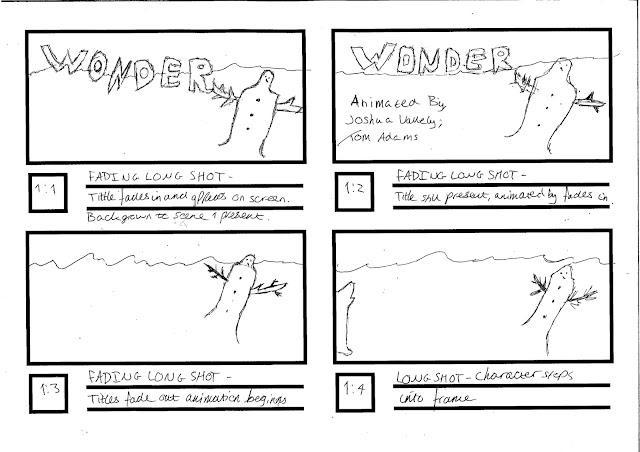 WONDER
1:1
FADING LONG SHOT -
Tittle fades in and appears on screen.
Backgrown to scene 1 present.
WONDER
Animated By
Joshua Vallely;
Tom Adams
1:2
FADING LONG SHOT -
Title still present, animated by fades in.
1:3
FADING LONG SHOT -
Titles fade out animation begins
1:4
LONG SHOT - Character steps
into frame